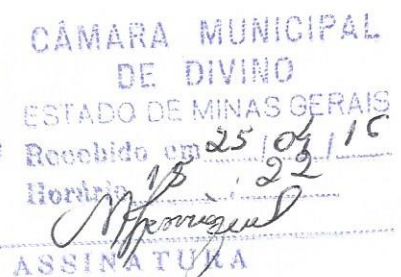 CÂMARA MUNICIPAL
DE DIVINO
ESTADO DE MINAS GERAIS
Recebido em 25 / 04 / 16
Horário 15 : 22
ASSINATURA